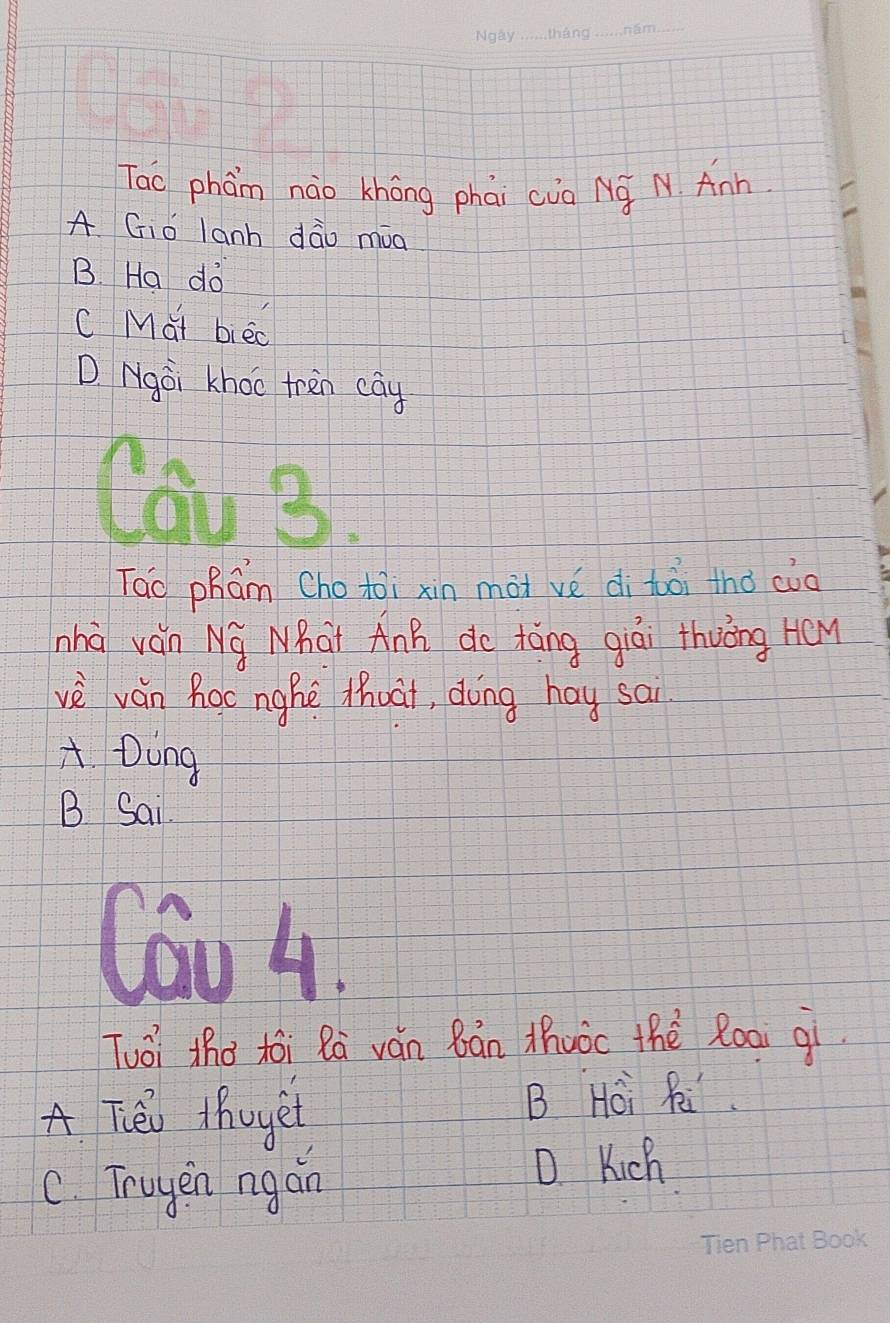 Ngày ......tháng ......năm......
Câu 2.
Tác phẩm nào không phải của Ng̃ N. Ánh.
A. Gió lạnh đầu mùa
B. Hạ đỏ
C Mắt biếc
D. Ngồi khóc trên cây
Câu 3.
Tác phẩm Cho tôi xin một vé đi tuổi thơ của
nhà văn Ng̃ Nhật Ánh đc tặng giải thưởng HCM
về văn học nghệ thuật, đúng hay sai.
A. Đúng
B Sai.
Câu 4.
Tuổi thơ tôi là văn bản thuộc thể loại gì.
A. Tiểu thuyết
B Hồi kí.
C. Truyện ngắn
D. Kịch.
Tien Phat Book